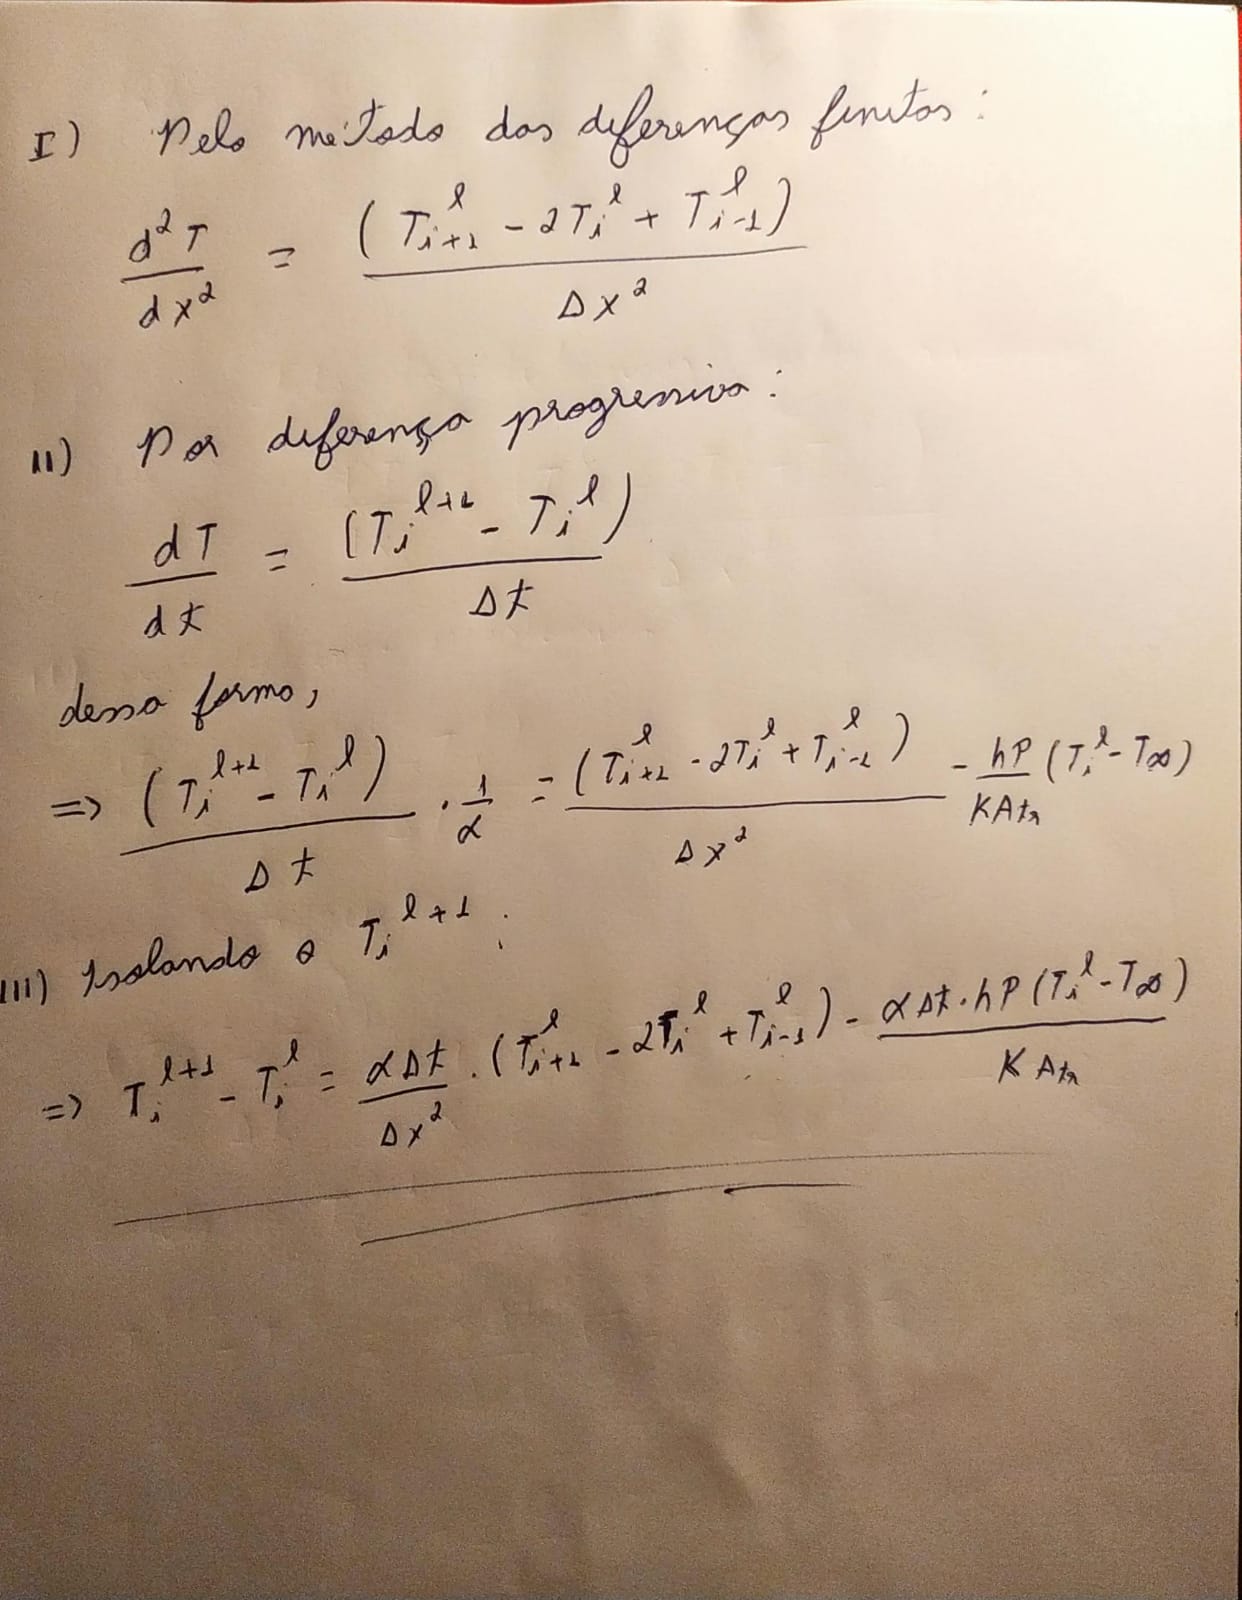 I) Pelo método das diferenças finitas:
d²T/dx² = (T_{i+1}^l - 2T_i^l + T_{i-1}^l)/Δx²
II) Por diferença progressiva:
dT/dt = (T_i^{l+1} - T_i^l)/Δt
dessa forma,
=> (T_i^{l+1} - T_i^l)/Δt · 1/α = (T_{i+1}^l - 2T_i^l + T_{i-1}^l)/Δx² - hP/KAtr (T_i^l - T∞)
III) Isolando o T_i^{l+1}:
=> T_i^{l+1} - T_i^l = αΔt/Δx² · (T_{i+1}^l - 2T_i^l + T_{i-1}^l) - αΔt·hP(T_i^l - T∞)/KAtr